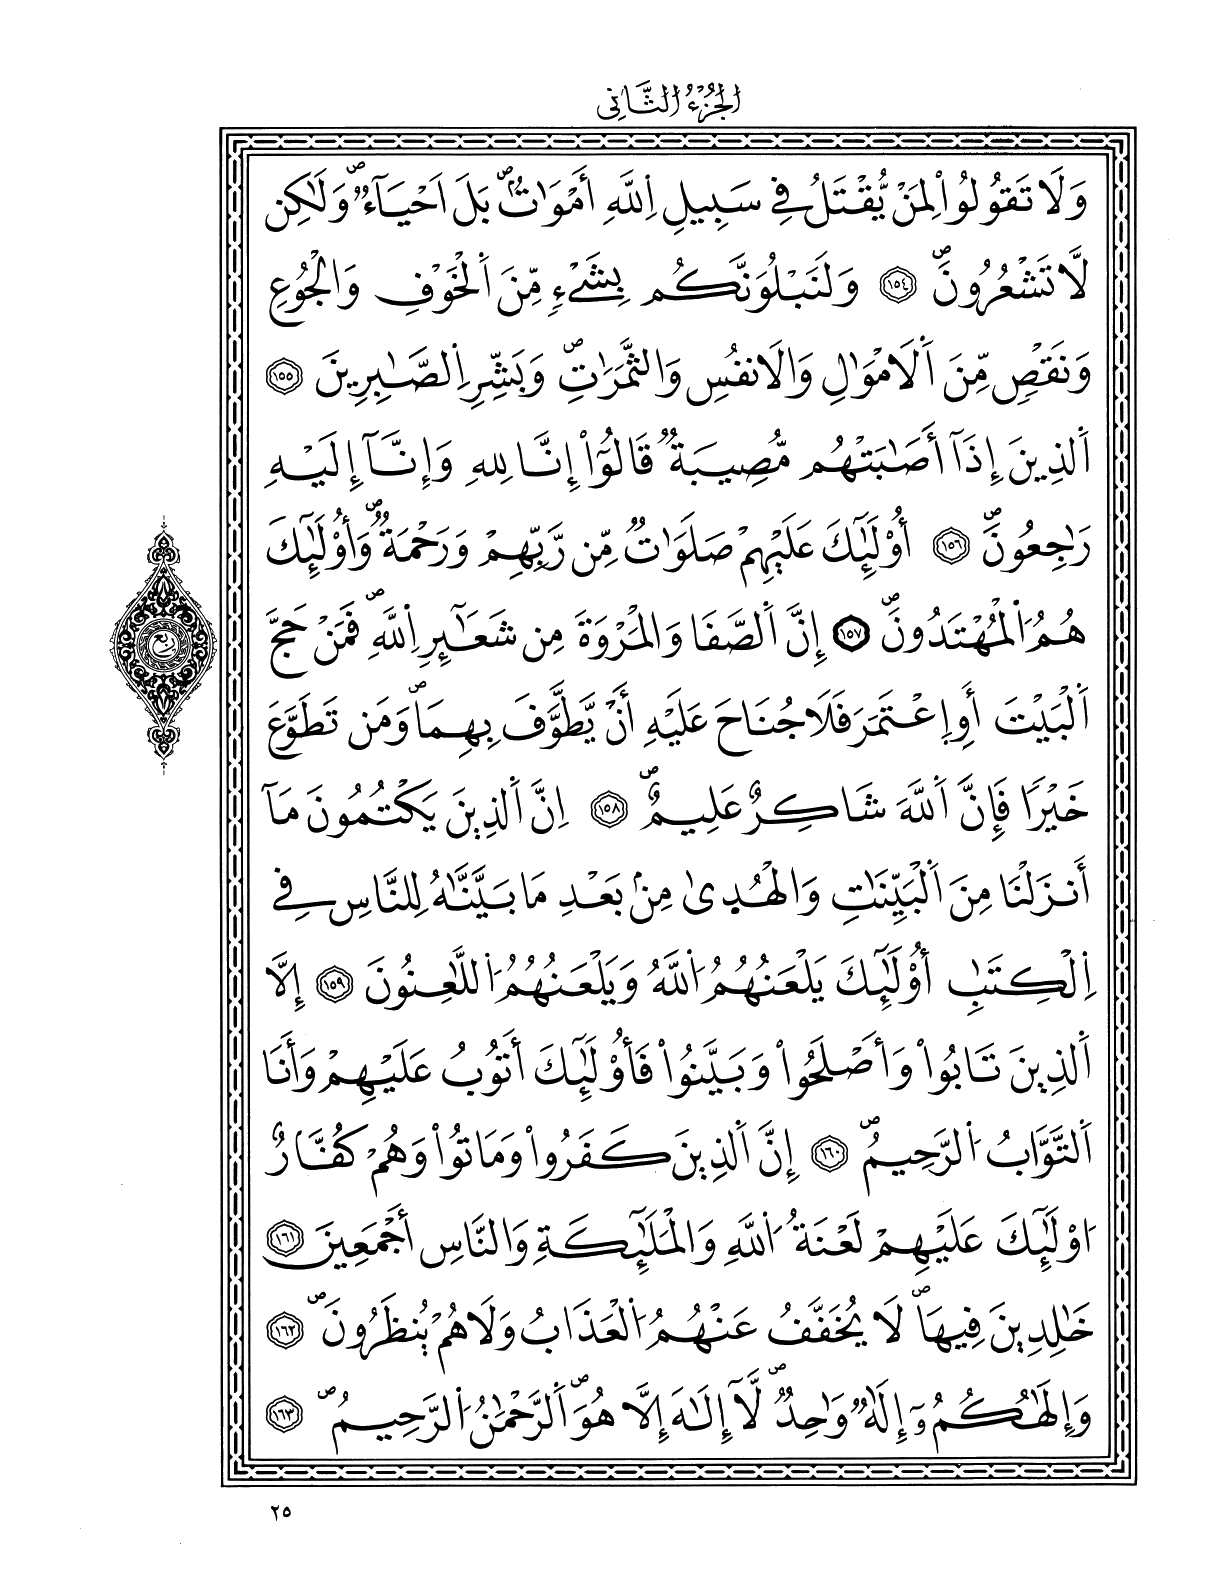 الجزء الثاني
وَلَا تَقُولُواْ لِمَنْ يُّقْتَلُ فِي سَبِيلِ اِللَّهِ أَمْوَٰتٌۢ ۖ بَلَ اَحْيَآءٌ ۖ وَلَٰكِن
لَّا تَشْعُرُونَ ۖ ١٥٤ وَلَنَبْلُوَنَّكُم بِشَيْءٖ مِّنَ اَلْخَوْفِ وَالْجُوعِ
وَنَقْصٖ مِّنَ اَلَامْوَٰلِ وَالَانفُسِ وَالثَّمَرَٰتِ ۖ وَبَشِّرِ اِلصَّٰبِرِينَ ١٥٥
اَلذِينَ إِذَآ أَصَٰبَتْهُم مُّصِيبَةٌ قَالُوٓاْ إِنَّا لِلهِ وَإِنَّآ إِلَيْهِ
رَٰجِعُونَ ۖ ١٥٦ أُوْلَٰٓئِكَ عَلَيْهِمْ صَلَوَٰتٌ مِّن رَّبِّهِمْ وَرَحْمَةٌ ۖ وَأُوْلَٰٓئِكَ
هُمُ اَلْمُهْتَدُونَ ۖ ١٥٧ إِنَّ اَلصَّفَا وَالْمَرْوَةَ مِن شَعَآئِرِ اِللَّهِ ۖ فَمَنْ حَجَّ
اَلْبَيْتَ أَوِ اِعْتَمَرَ فَلَا جُنَاحَ عَلَيْهِ أَنْ يَّطَّوَّفَ بِهِمَا ۖ وَمَن تَطَوَّعَ
خَيْرًا فَإِنَّ اَللَّهَ شَاكِرٌ عَلِيمٌ ۖ ١٥٨ اِنَّ اَلذِينَ يَكْتُمُونَ مَآ
أَنزَلْنَا مِنَ اَلْبَيِّنَٰتِ وَالْهُدۭىٰ مِنۢ بَعْدِ مَا بَيَّنَّٰهُ لِلنَّاسِ فِي
اِلْكِتَٰبِ أُوْلَٰٓئِكَ يَلْعَنُهُمُ اَللَّهُ وَيَلْعَنُهُمُ اَللَّٰعِنُونَ ١٥٩ إِلَّا
اَلذِينَ تَابُواْ وَأَصْلَحُواْ وَبَيَّنُواْ فَأُوْلَٰٓئِكَ أَتُوبُ عَلَيْهِمْ وَأَنَا
اَلتَّوَّابُ اُلرَّحِيمُ ۖ ١٦٠ إِنَّ اَلذِينَ كَفَرُواْ وَمَاتُواْ وَهُمْ كُفَّارٌ
اُوْلَٰٓئِكَ عَلَيْهِمْ لَعْنَةُ اُللَّهِ وَالْمَلَٰٓئِكَةِ وَالنَّاسِ أَجْمَعِينَ ١٦١
خَٰلِدِينَ فِيهَا ۖ لَا يُخَفَّفُ عَنْهُمُ اَلْعَذَابُ وَلَا هُمْ يُنظَرُونَ ۖ ١٦٢
وَإِلَٰهُكُمُ وَإِلَٰهٌ وَٰحِدٌ ۖ لَّآ إِلَٰهَ إِلَّا هُوَ ۖ اَلرَّحْمَٰنُ اُلرَّحِيمُ ۖ ١٦٣
ربع
٢٥